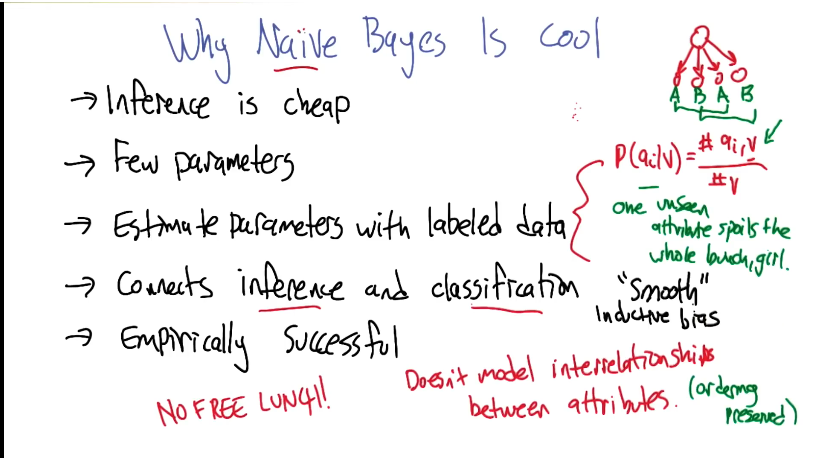 Why Naïve Bayes Is cool
→ Inference is cheap
→ Few parameters
→ Estimate parameters with labeled data
→ Connects inference and classification
→ Empirically Successful
A B A B
P(ai|V) = # ai, V / # V
one unseen
attribute spoils the
whole bunch, girl.
"Smooth"
Inductive bias
NO FREE LUNCH!
Doesn't model interrelationships
between attributes.
(ordering
preserved)